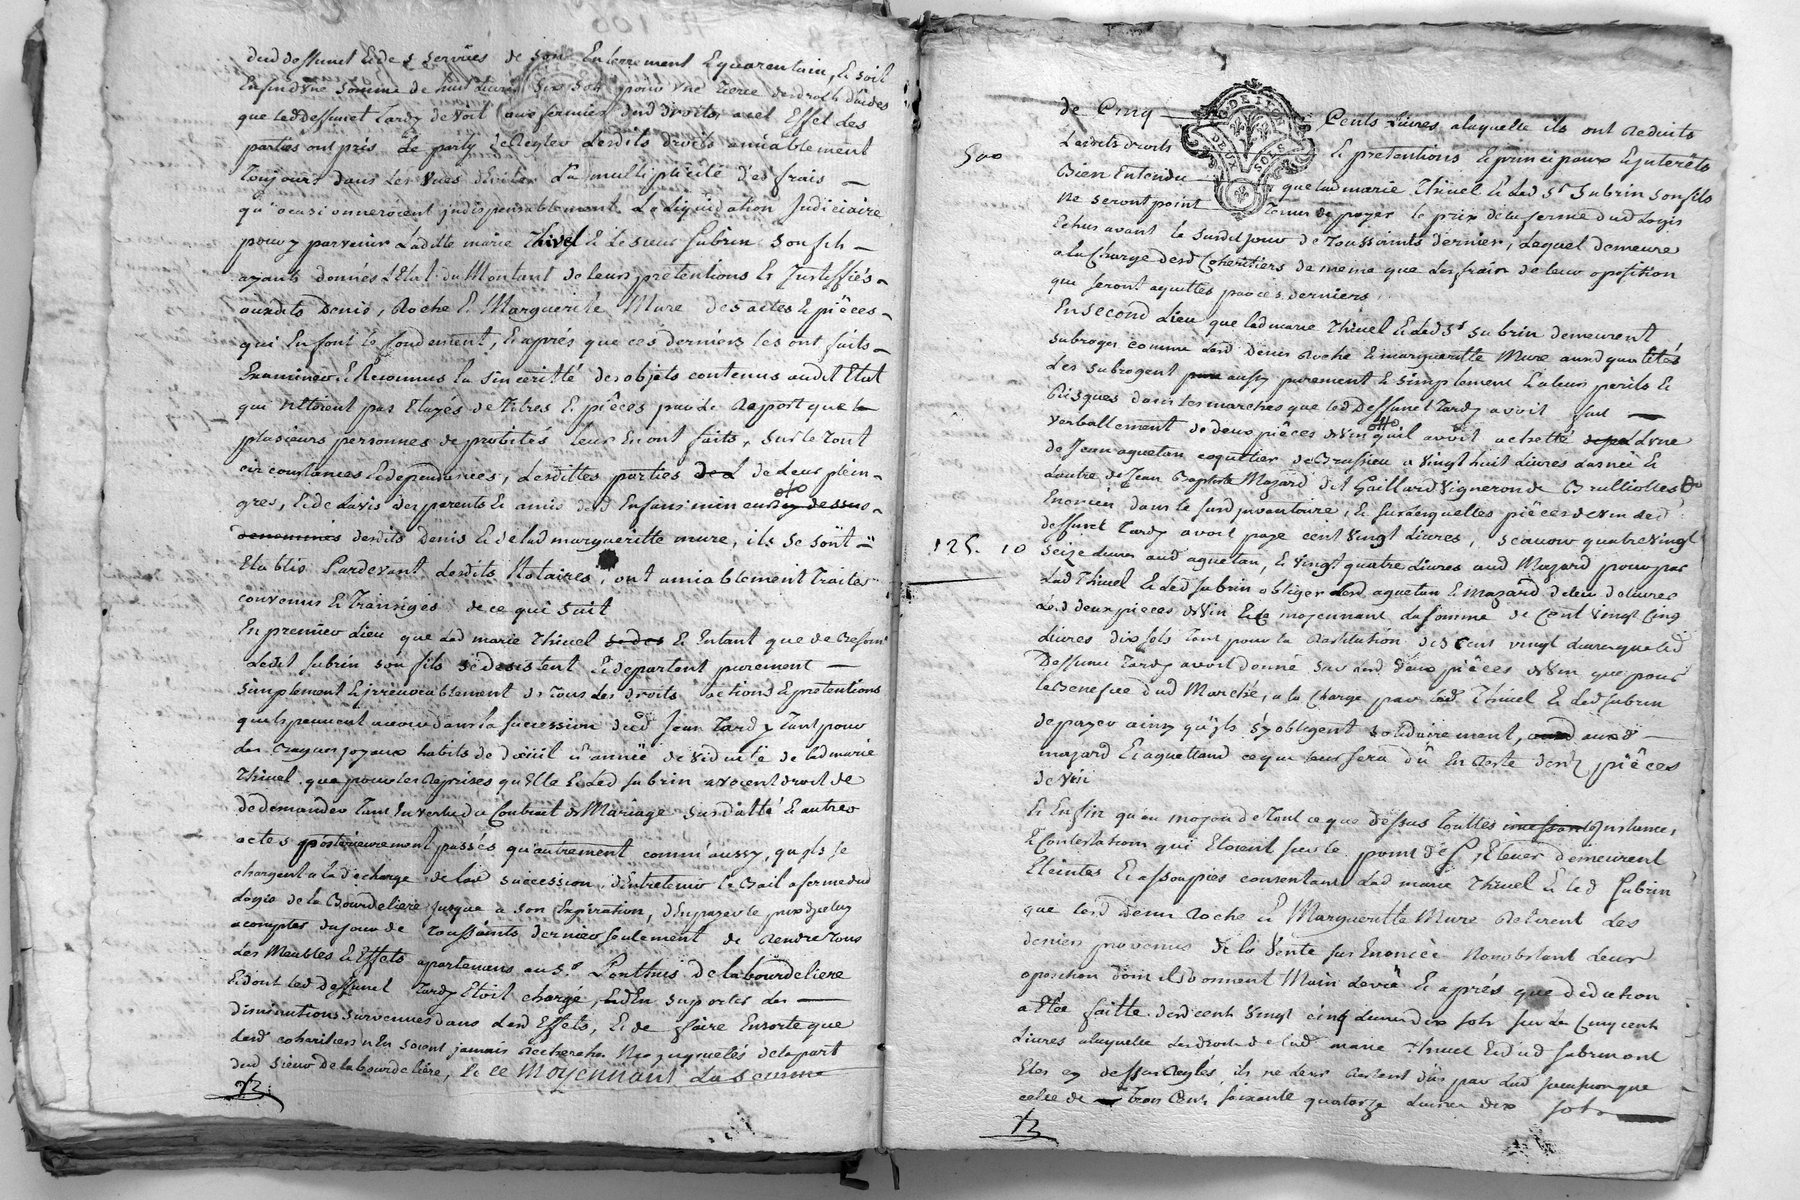 dud deffunct & des services de son Enterrement & quarentain, & soit
Enfin d'une somme de huit Livres six sols pour une tierce des droits dûs
que led deffunct Tardy devoit aux fermiers dud droits, a cet Effet les
parties ont pris Le party de Regler Lesdits droits amiablement
Toujours dans les vues d'eviter La multiplicité des frais
qu'ocasionneroient indispensablement La Liquidation Judiciaire
pour y parvenir Ladite marie Thivel & Le sieur Subrin son fils
ayants donnés L'Etat du Montant de leurs pretentions & Justeffiés
auxdits Denis, Roche & Marguerite Mure des actes & piêces
qui En font le fondement, & aprés que ces derniers les ont faits
Examiner & Reconnus La sincerité des objets contenus audit Etat
qui n'étoient pas Etayés de titres & piêces par Le Rapport que
plusieurs personnes de probités leur En ont faits, sur le tout
circonstances & dependances, Lesdittes parties de Leur plein
gres, & de L'avis des parents & amis desd Enfans mineurs dessus
denommés desdits Denis & de lad margueritte mure, ils se sont
Etablis Pardevant Lesdits Notaires, ont amiablement Traités
convenus & Transigés de ce qui suit
En premier Lieu que Lad marie Thivel & Entant que de Besoin
Ledit Subrin son fils se desistent & departent purement
simplement & irrevocablement de tous Les droits, actions & pretentions
qu'ils peuvent avoir dans la succession dud Jean Tardy Tant pour
Les Bagues joyaux habits de deüil & année de viduité de lad marie
Thivel que pour les Reprises qu'elle & led Subrin avoient droit de
de demander tant En vertu du Contrat de Mariage susdatté & autres
actes postérieurement passés qu'autrement comm'aussy, qu'ils se
chargent a la decharge de lad succession, d'Entretenir le Bail a ferme dud
Logis de la Bourdeliere jusque a son Expiration, d'En payer le prix d'iceluy
acompter du jour de Toussaints dernier seulement de Rendre tous
Les Meubles & Effets apartenans au Sr Ponthus de labourdeliere
& dont led deffunct Tardy Etoit chargé, & d'En suporter les
diminutions survenues dans Lesd Effets, & de faire Ensorte que
Lesd coheritiers n'En soient jamais Recherchés Ny inquietés de la part
dud sieur de labourdeliére, & ce Moyennant La somme
de Cinq Cents Livres a laquelle ils ont Reduits
500
Lesdits droits & pretentions & principaux & interêts
Bien Entendu que lad marie Thivel & Led Sr Subrin son fils
G. DE LYON
DEUX SOLS
Ne seront point Tenus de payer le prix de la ferme dud Logis
Echus avant le susdit jour de Toussaints dernier, Lequel demeure
a la charge desd Coheritiers de meme que Les frais de leur oposition
qui seront aquittés par ces derniers
En second Lieu que lad marie Thivel & Led Sr Subrin demeurent
subrogés comme Lesd Denis Roche & margueritte Mure auxd qualités
Les subrogent aussy purement & simplement & a leurs perils &
Risques dans les marches que led Deffunct Tardy avoit fait
verballement de deux piêces de vin qu'il avoit achetté L'une
de Jean aguetan coquetier de Brussieu a vingt huit Livres L'année &
L'autre de Jean Baptiste Mazard dit Gaillard vigneron de Brullioles
Enoncées dans le susd inventoire, & sur lesquelles piêces de vin led
deffunct Tardy avoit payé cent vingt Livres, scavoir quatre vingt
125. 10
seize Livres aud aguetan, & vingt quatre Livres aud Mazard pour par
Lad Thivel & Led Subrin obliger Lesd aguetan & Mazard de leur delivrer
Lesd deux pieces de vin & ce moyennant La somme de Cent vingt Cinq
Livres dix sols tant pour la Restitution des cent vingt Livres que led
Deffunct Tardy avoit donné sur lesd deux piêces de vin que pour
le Benefice dud Marché, a la charge par lad Thivel & Led Subrin
de payer ainsy qu'ils s'y obligent solidairement, auxd
mazard & aguettand ce qui leur sera dû En Reste desd piêces
de vin
& Enfin qu'au moyen de tout ce que dessus touttes instances
& Contestations qui Etoient sur le point de s'Elever demeurent
Eteintes & assoupies consentant Lad marie Thivel & led Subrin
que lesd Denis Roche & Margueritte Mure Retirent Les
deniers provenus de la vente sus Enoncée Nonobstant Leur
oposition dont ils donnent Main Levée & aprés que deduction
a Etée faitte desd cent vingt cinq Livres dix sols sur Les Cinq cents
Livres a laquelle Les droits de lad marie Thivel & dud Subrin ont
Etés cy dessus Reglés, ils ne leur Restent dûs par lad succession que
celle de Trois Cents soixante quatorze Livres dix sols